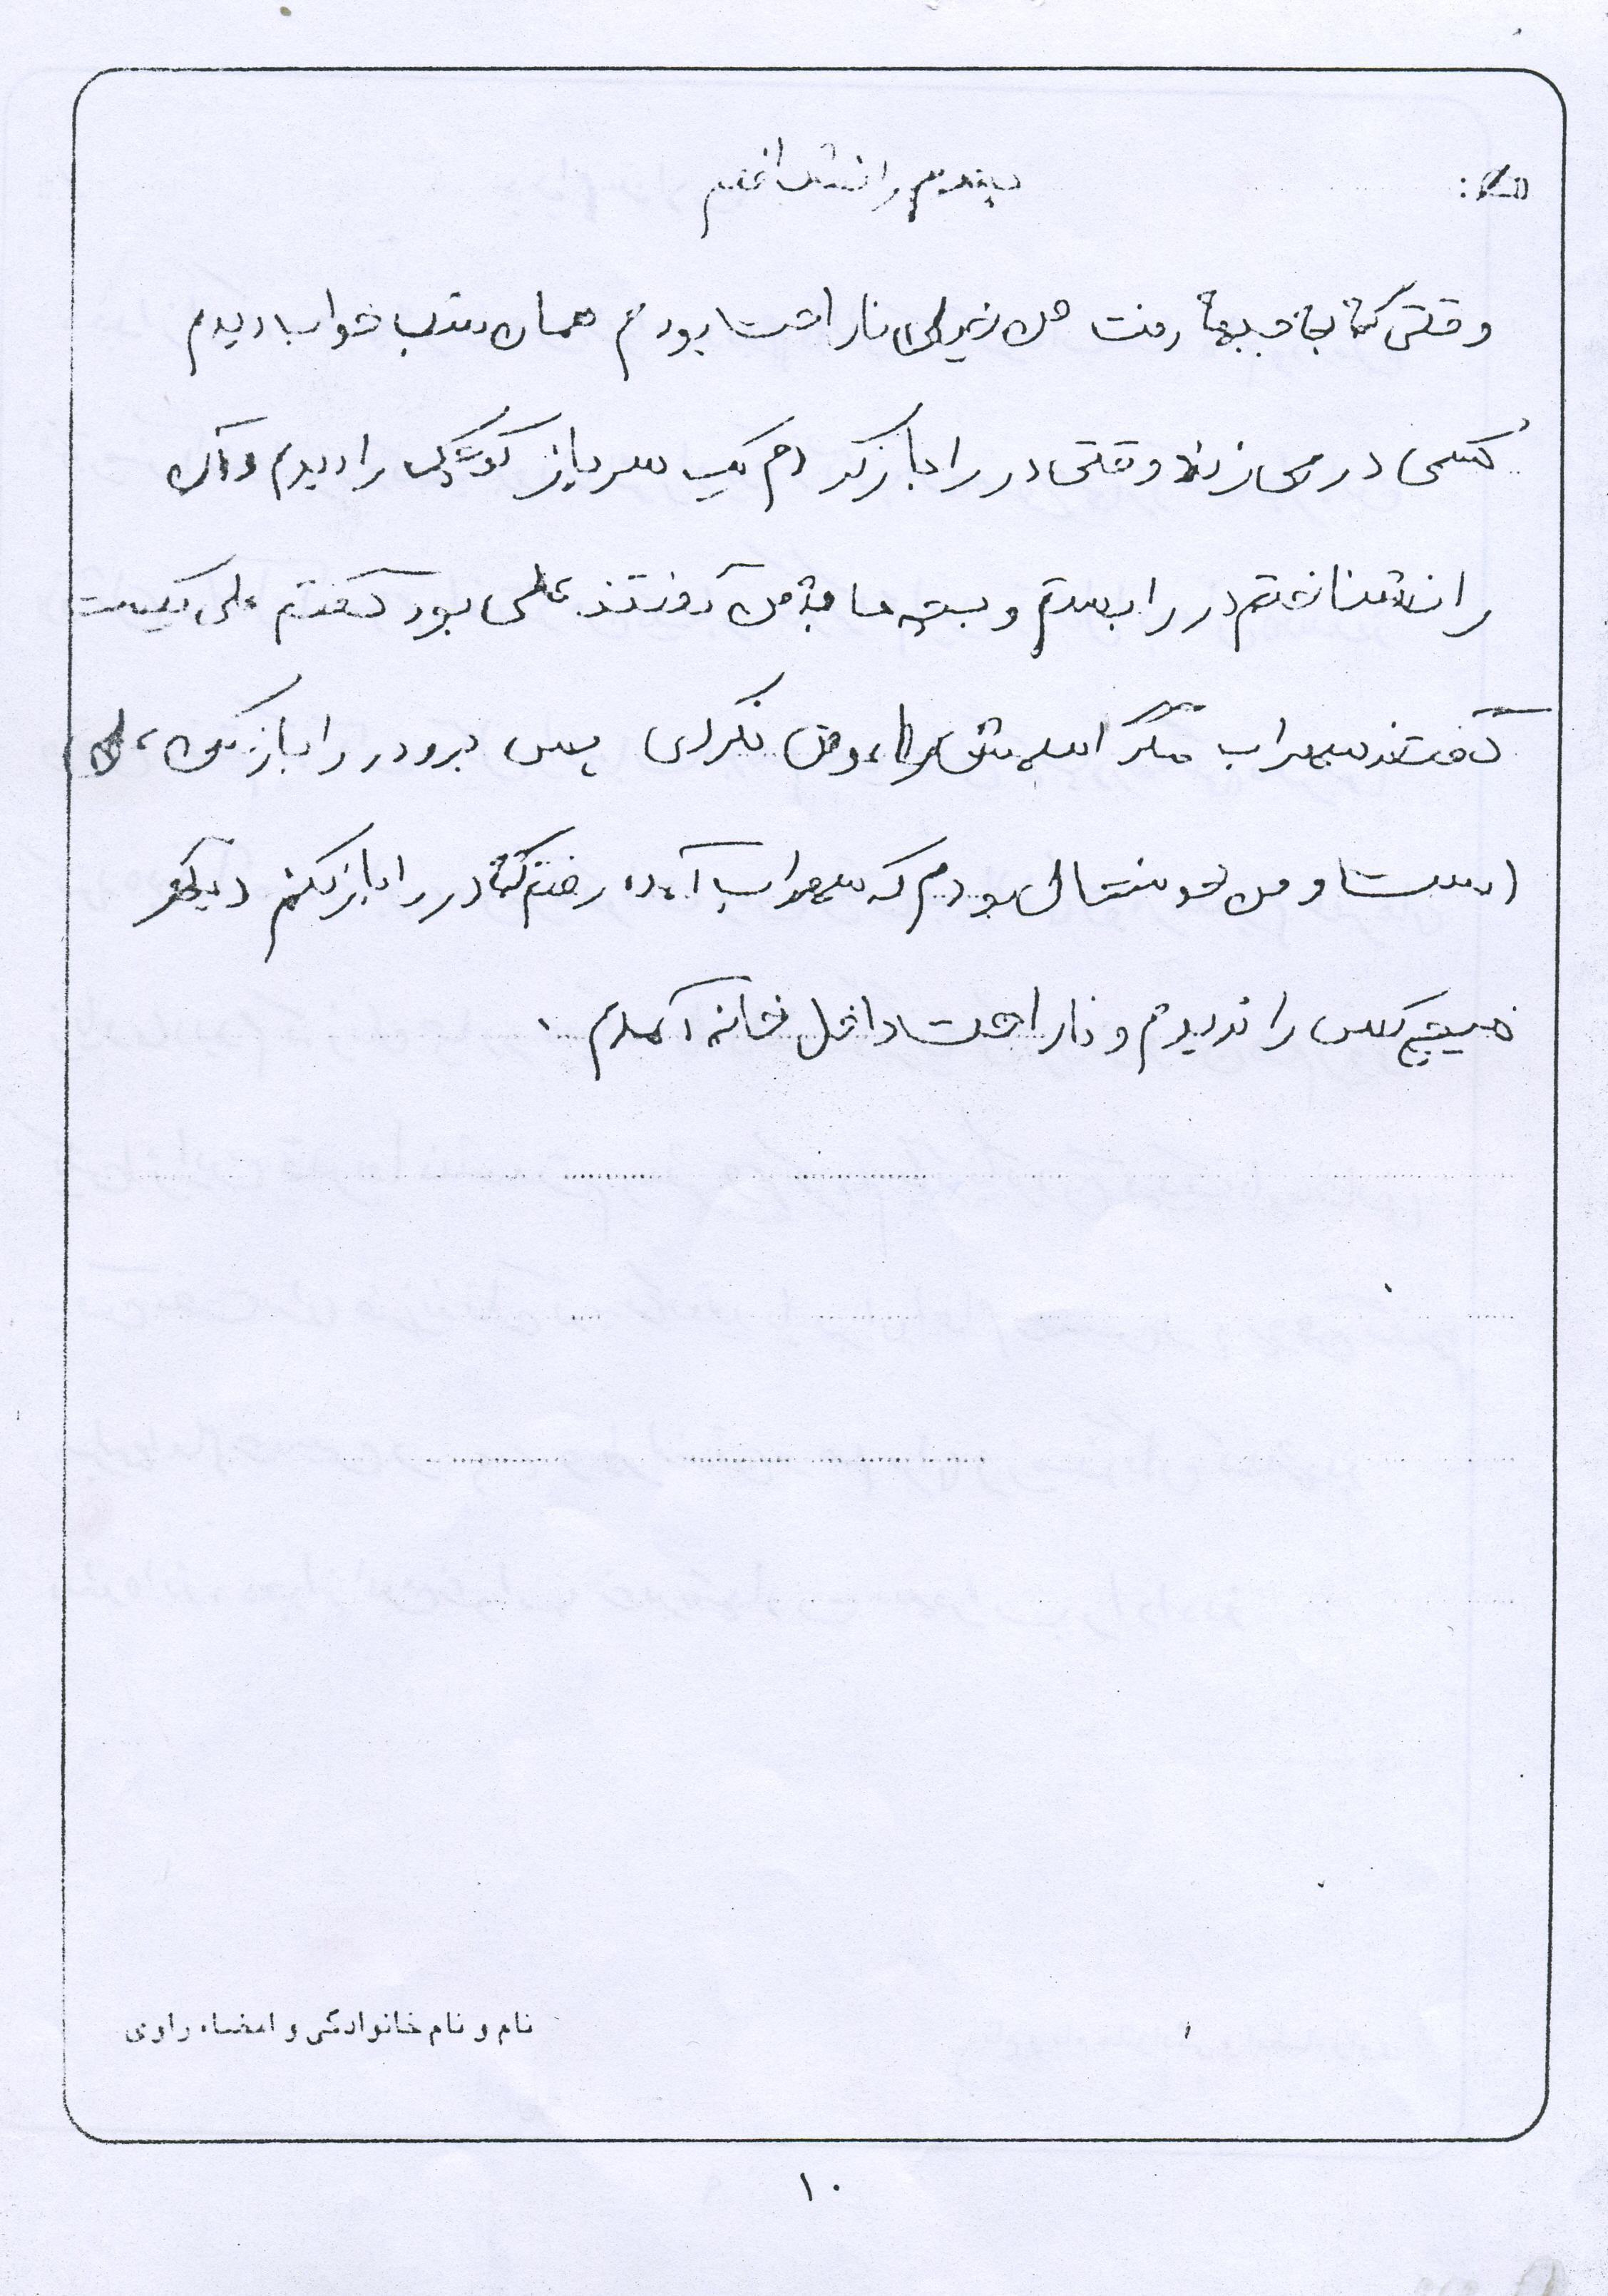 پسرم را نشناختم
وقتی که به جبهه رفت من خیلی ناراحت بودم همان شب خواب دیدم
کسی در می زند وقتی در را باز کردم یک سرباز کوچکی را دیدم و آن
را نشناختم در را بستم و بچه ها به من گفتند علی بود گفتم علی کیست
گفتند سهراب مگر اسمش را عوض نکردی پس برو در را باز کن علی
است و من خوشحال بودم که سهراب آمده رفتم که در را باز کنم دیگر
هیچ کس را ندیدم و ناراحت داخل خانه آمدم .
نام و نام خانوادگی و امضاء راوی
۱۰